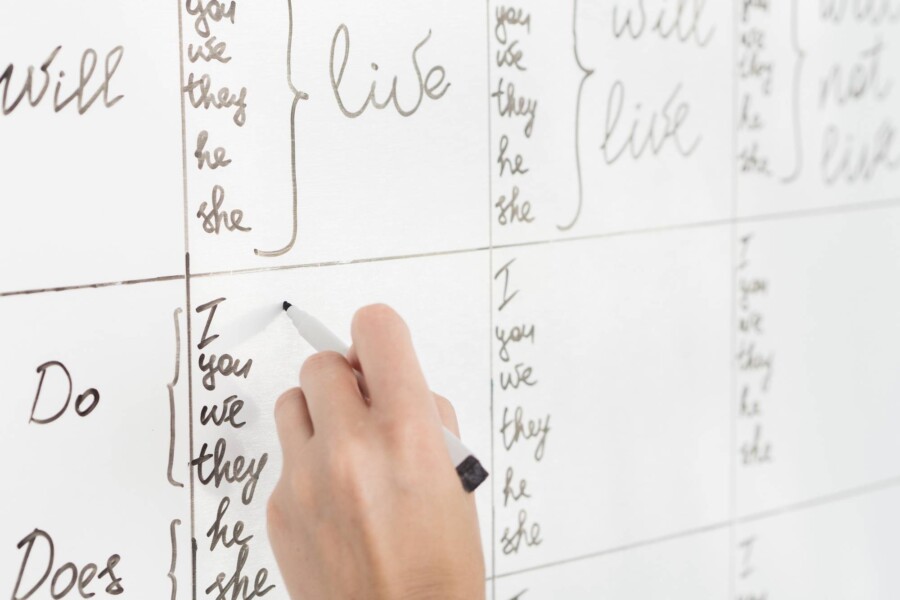 Will
you
we
they
he
she
live
you
we
they
he
she
will
live
we
they
he
she
not
live
Do
Does
I
you
we
they
he
she
I
you
we
they
he
she
I
you
we
they
he
she
I